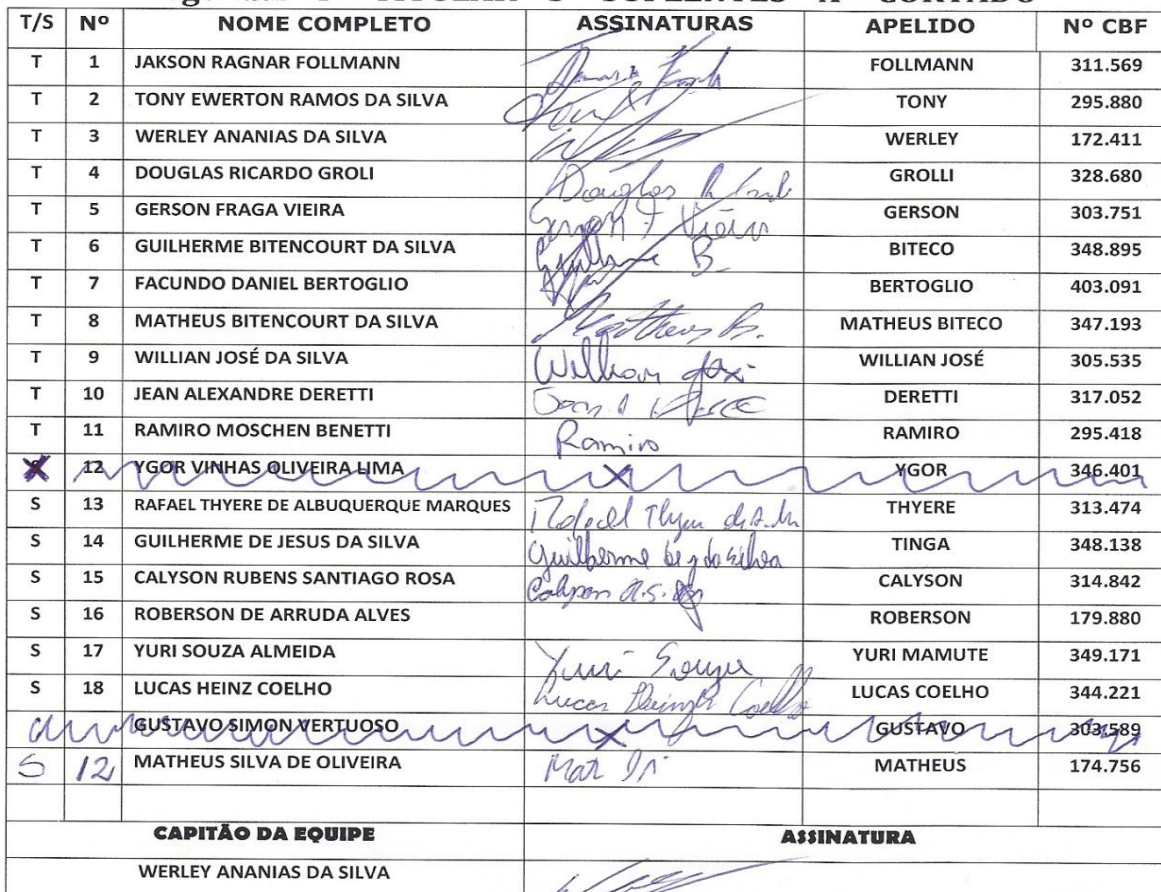 TITULAR S SUPLENTES X CORTADO
T/S Nº NOME COMPLETO ASSINATURAS APELIDO Nº CBF
T 1 JAKSON RAGNAR FOLLMANN FOLLMANN 311.569
T 2 TONY EWERTON RAMOS DA SILVA TONY 295.880
T 3 WERLEY ANANIAS DA SILVA WERLEY 172.411
T 4 DOUGLAS RICARDO GROLI Douglas R GROLLI 328.680
T 5 GERSON FRAGA VIEIRA Gerson F Vieira GERSON 303.751
T 6 GUILHERME BITENCOURT DA SILVA Guilherme B. BITECO 348.895
T 7 FACUNDO DANIEL BERTOGLIO BERTOGLIO 403.091
T 8 MATHEUS BITENCOURT DA SILVA Matheus B. MATHEUS BITECO 347.193
T 9 WILLIAN JOSÉ DA SILVA Willian José WILLIAN JOSÉ 305.535
T 10 JEAN ALEXANDRE DERETTI DERETTI 317.052
T 11 RAMIRO MOSCHEN BENETTI Ramiro RAMIRO 295.418
X 12 YGOR VINHAS OLIVEIRA LIMA X YGOR 346.401
S 13 RAFAEL THYERE DE ALBUQUERQUE MARQUES Rafael Thyere de A. M THYERE 313.474
S 14 GUILHERME DE JESUS DA SILVA Guilherme de j da silva TINGA 348.138
S 15 CALYSON RUBENS SANTIAGO ROSA Calyson R.S. CALYSON 314.842
S 16 ROBERSON DE ARRUDA ALVES ROBERSON 179.880
S 17 YURI SOUZA ALMEIDA Yuri Souza YURI MAMUTE 349.171
S 18 LUCAS HEINZ COELHO Lucas Heinz Coelho LUCAS COELHO 344.221
GUSTAVO SIMON VERTUOSO X GUSTAVO 303.589
S 12 MATHEUS SILVA DE OLIVEIRA MATHEUS 174.756
CAPITÃO DA EQUIPE ASSINATURA
WERLEY ANANIAS DA SILVA